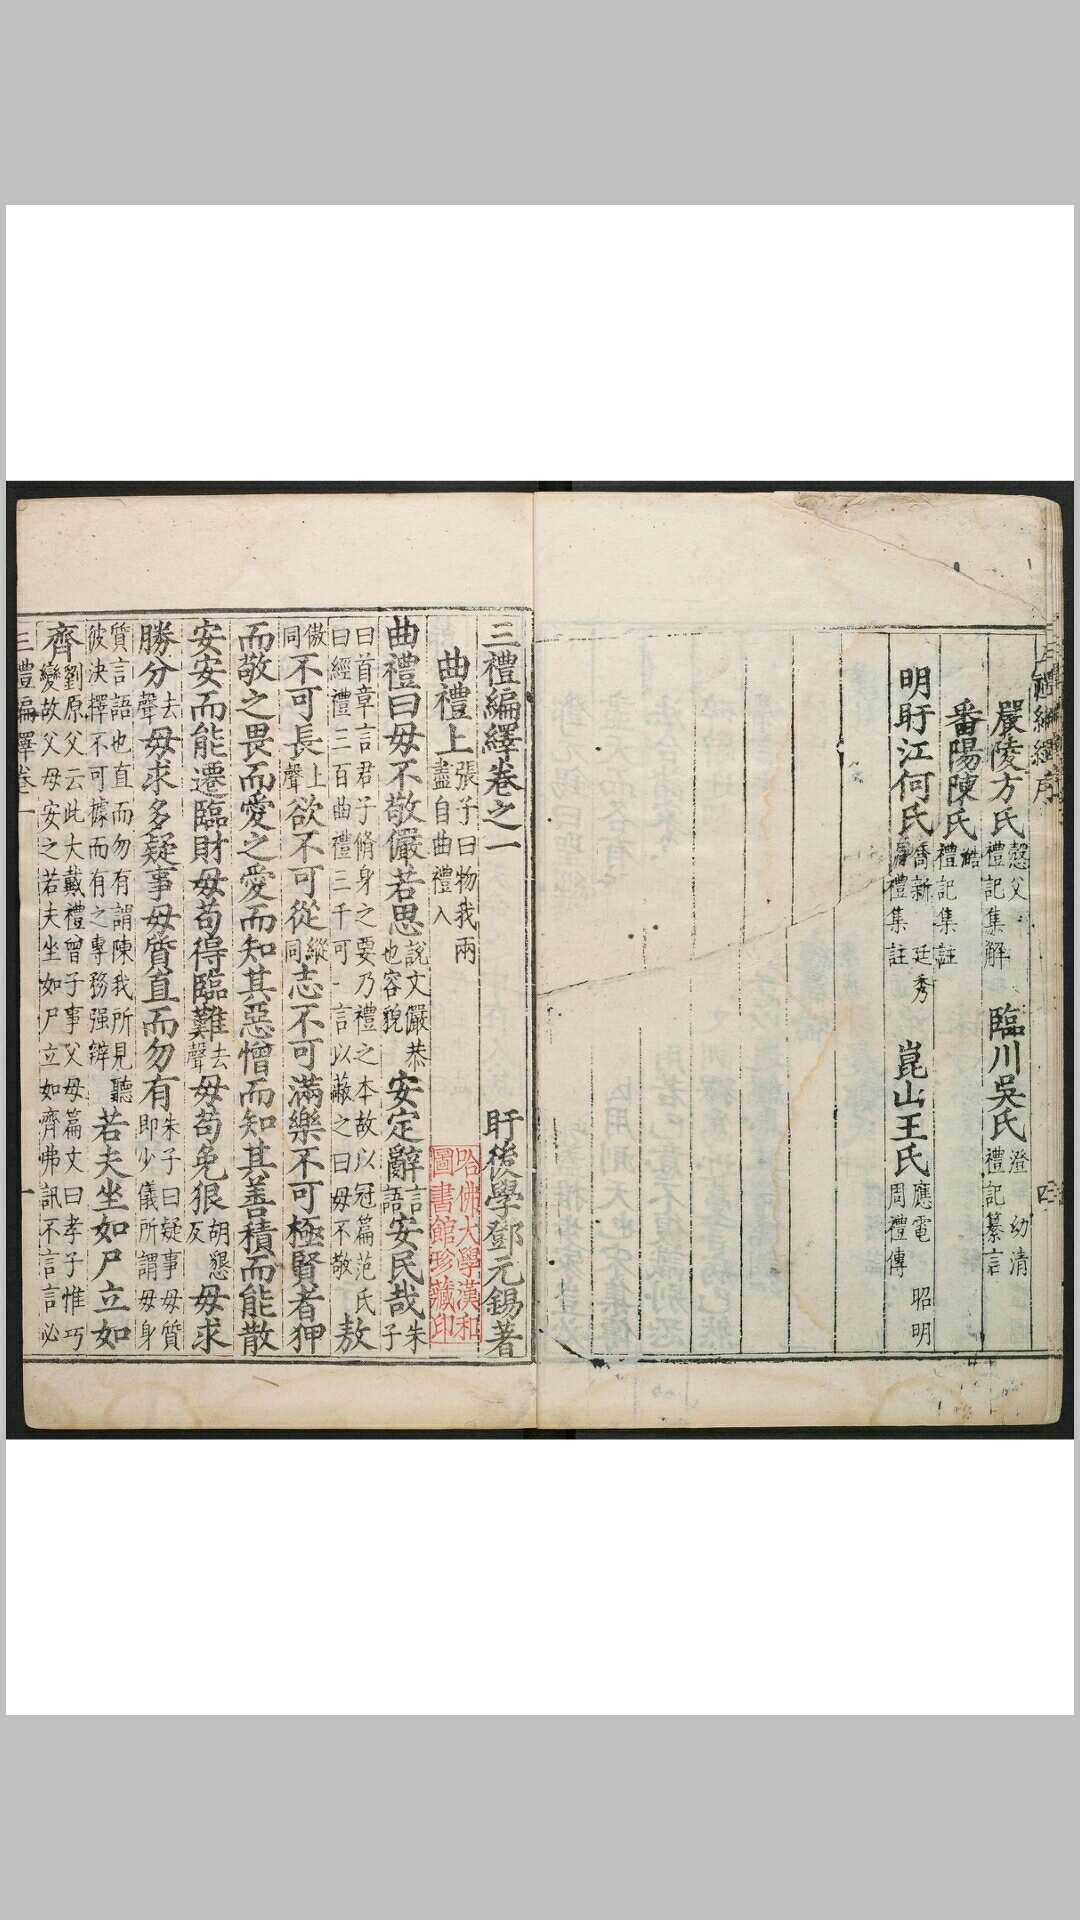 嚴陵方氏 愨父 禮記集解 臨川吳氏 澄 幼清 禮記纂言
番陽陳氏 皓 禮記集註
明盱江何氏 喬新 廷秀 周禮集註 崑山王氏 應電 昭明 周禮傳
四
三禮編繹卷之一
盱後學鄧元錫著
曲禮上 張子曰物我兩盡自曲禮入
哈佛大學漢和圖書館珍藏印
曲禮曰毋不敬儼若思 說文儼恭也容貌 安定辭 言語 安民哉 朱子
曰首章言君子脩身之要乃禮之本故以冠篇范氏曰經禮三百曲禮三千可一言以蔽之曰毋不敬 敖
傲同 不可長 上聲 欲不可從 縱同 志不可滿樂不可極賢者狎
而敬之畏而愛之愛而知其惡憎而知其善積而能散
安安而能遷臨財毋苟得臨難 去聲 毋苟免狠 胡懇反 毋求
勝分 去聲 毋求多疑事毋質直而勿有 朱子曰疑事毋質即少儀所謂毋身
質言語也直而勿有謂陳我所見聽彼決擇不可據而有之專務强辨 若夫坐如尸立如
齊 劉原父云此大戴禮曾子事父母篇文曰孝子惟巧變故父母安之若夫坐如尸立如齊弗訊不言言必
三禮編繹卷一 一